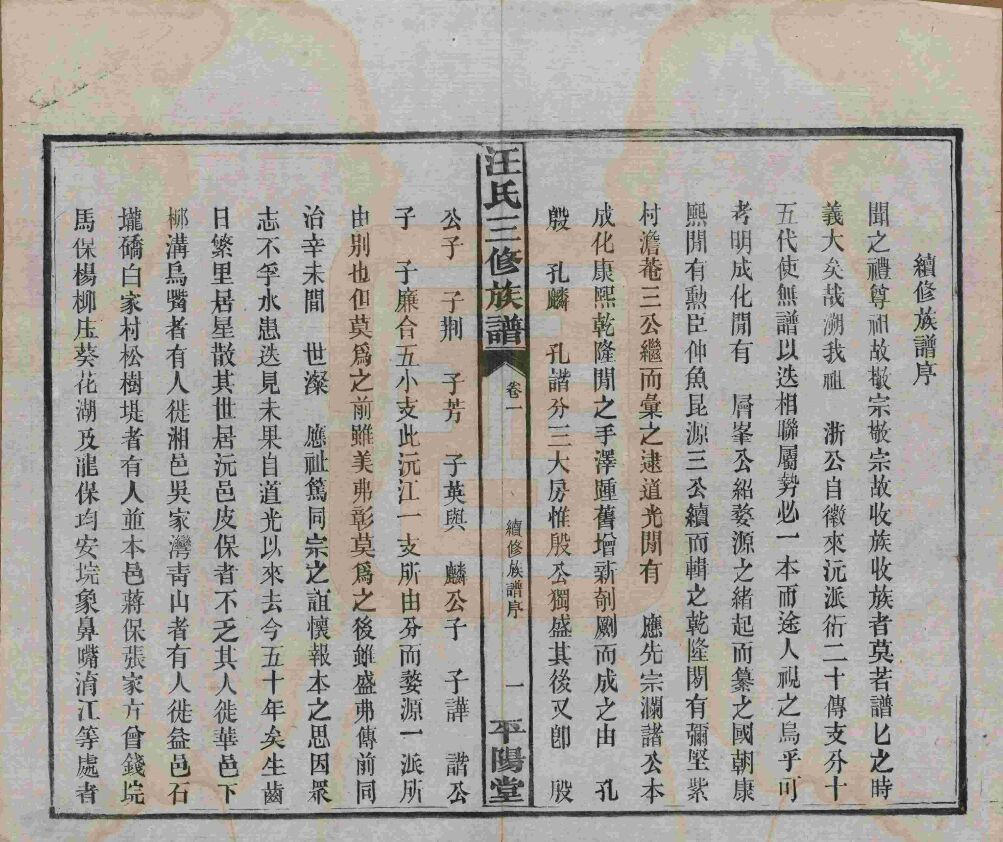 續修族譜序
聞之禮尊祖故敬宗敬宗故收族收族者莫若譜匕之時
義大矣哉溯我祖 浙公自徽來沅派衍二十傳支分十
五代使無譜以迭相聯屬勢必一本而途人視之烏乎可
考明成化閒有 層峯公紹婺源之緒起而纂之國朝康
熙閒有勳臣仲魚昆源三公續而輯之乾隆閒有彌堅紫
村澹菴三公繼而彙之逮道光閒有 應先宗瀾諸公本
成化康熙乾隆閒之手澤踵舊增新剞劂而成之由 孔
殷 孔麟 孔諧分三大房惟殷公獨盛其後又卽 殷
汪氏三修族譜 卷一 續修族譜序 一 平陽堂
公子 子荆 子芳 子英與 麟公子 子譁 諧公
子 子廉合五小支此沅江一支所由分而婺源一派所
由別也但莫爲之前雖美弗彰莫爲之後雖盛弗傳前同
治辛未間 世濚 應祉篤同宗之誼懷報本之思因衆
志不孚水患迭見未果自道光以來去今五十年矣生齒
日繁里居星散其世居沅邑皮保者不乏其人徙華邑下
柳溝烏嘴者有人徙湘邑吳家灣靑山者有人徙益邑石
壠礄白家村松樹堤者有人並本邑蔣保張家亣曾錢垸
馬保楊柳庄葵花湖及龍保均安垸象鼻嘴淯江等處者